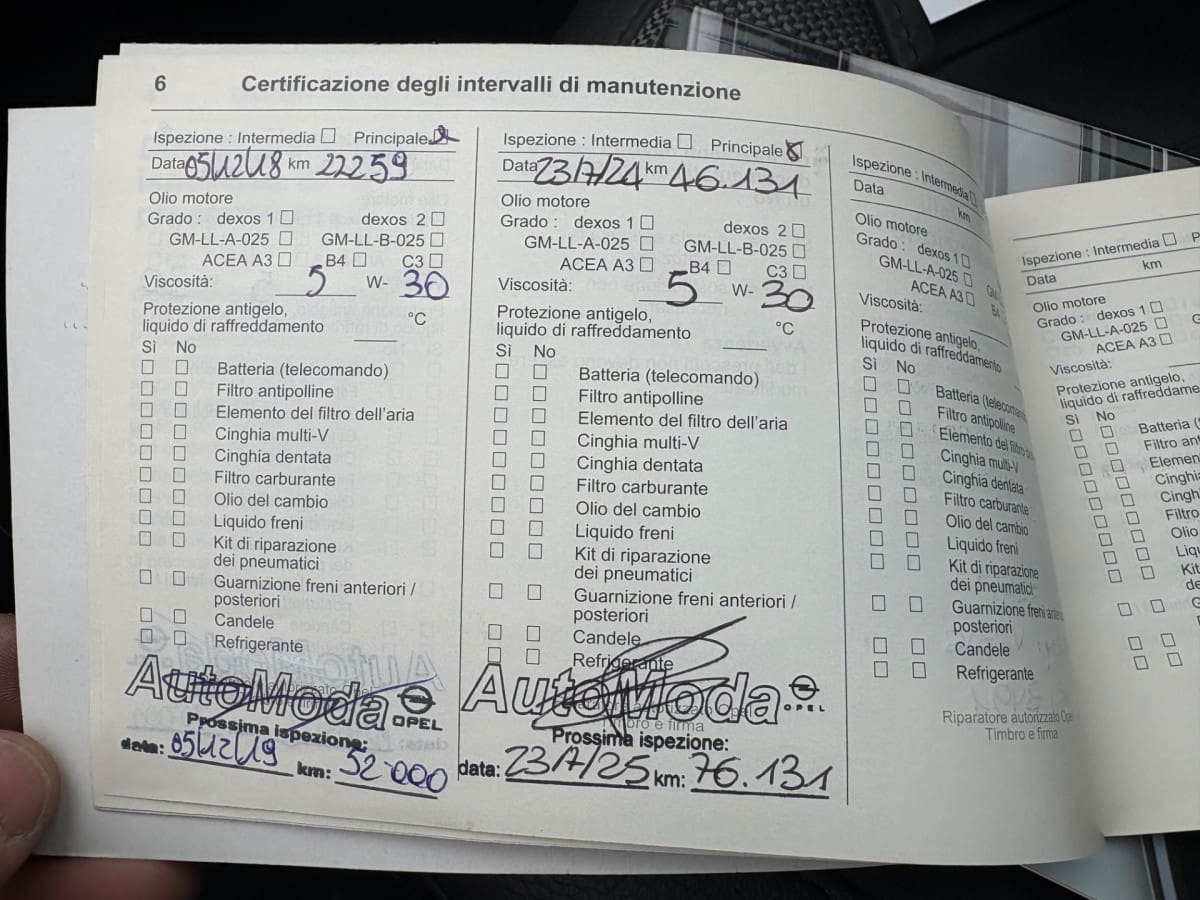 6 Certificazione degli intervalli di manutenzione
Ispezione : Intermedia Principale
Data 05/12/18 km 22259
Olio motore
Grado : dexos 1 dexos 2
GM-LL-A-025 GM-LL-B-025
ACEA A3 B4 C3
Viscosità: 5 W- 30
Protezione antigelo,
liquido di raffreddamento °C
Sì No
Batteria (telecomando)
Filtro antipolline
Elemento del filtro dell'aria
Cinghia multi-V
Cinghia dentata
Filtro carburante
Olio del cambio
Liquido freni
Kit di riparazione
dei pneumatici
Guarnizione freni anteriori /
posteriori
Candele
Refrigerante
AutoModa OPEL
Prossima ispezione:
data: 05/12/19 km: 52000
Ispezione : Intermedia Principale
Data 23/7/24 km 46.131
Olio motore
Grado : dexos 1 dexos 2
GM-LL-A-025 GM-LL-B-025
ACEA A3 B4 C3
Viscosità: 5 W- 30
Protezione antigelo,
liquido di raffreddamento °C
Sì No
Batteria (telecomando)
Filtro antipolline
Elemento del filtro dell'aria
Cinghia multi-V
Cinghia dentata
Filtro carburante
Olio del cambio
Liquido freni
Kit di riparazione
dei pneumatici
Guarnizione freni anteriori /
posteriori
Candele
Refrigerante
AutoModa OPEL
Timbro e firma
Prossima ispezione:
data: 23/7/25 km: 76.131
Ispezione : Intermedia
Data km
Olio motore
Grado : dexos 1
GM-LL-A-025 GM
ACEA A3 B4
Viscosità:
Protezione antigelo,
liquido di raffreddamento
Sì No
Batteria (telecoman
Filtro antipolline
Elemento del filtro
Cinghia multi-V
Cinghia dentata
Filtro carburante
Olio del cambio
Liquido freni
Kit di riparazione
dei pneumatici
Guarnizione freni ante
posteriori
Candele
Refrigerante
Riparatore autorizzato Opel
Timbro e firma
Ispezione : Intermedia P
Data km
Olio motore
Grado : dexos 1
GM-LL-A-025
ACEA A3
Viscosità:
Protezione antigelo,
liquido di raffreddame
Sì No
Batteria (
Filtro an
Elemen
Cinghia
Cingh
Filtro
Olio
Liqu
Kit
de
G